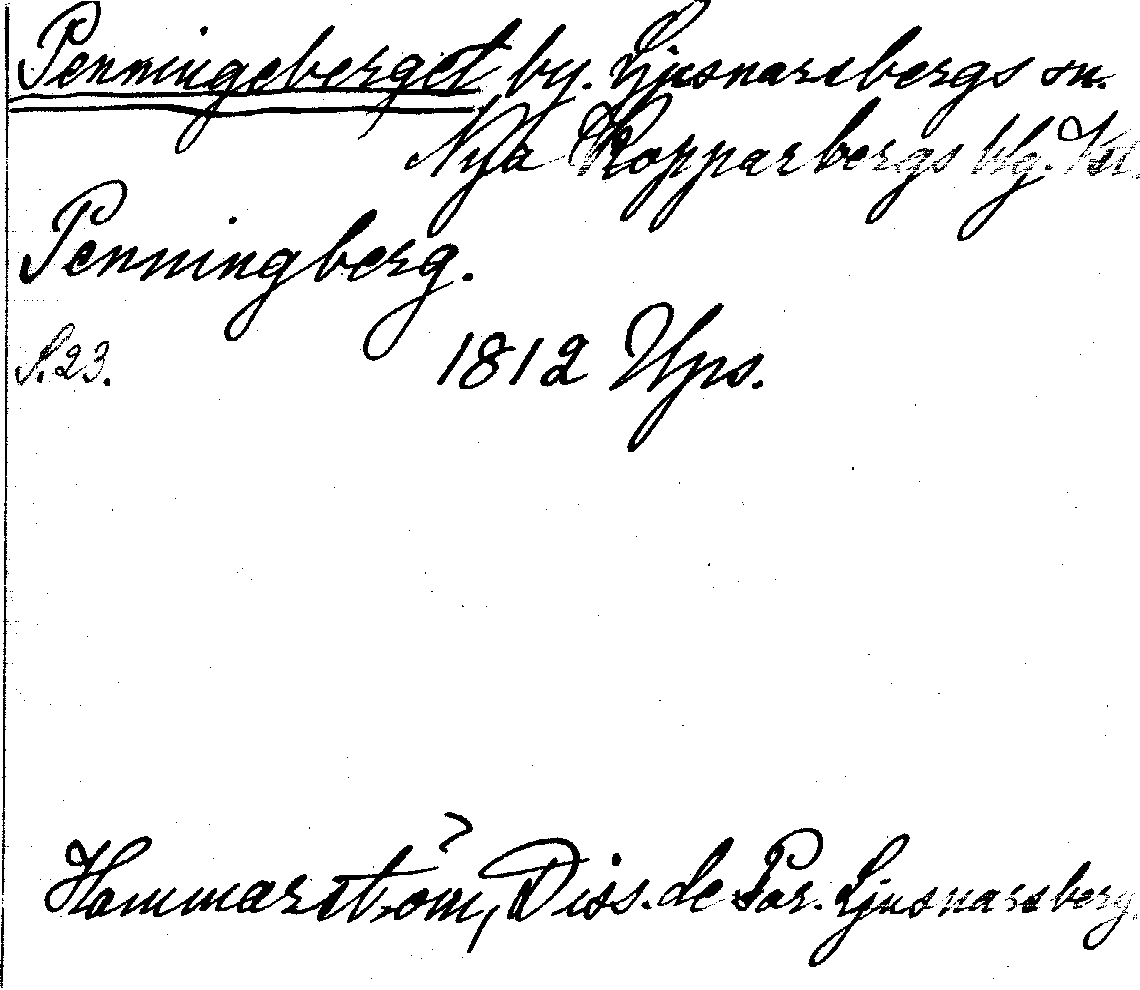 Penningeberget by. Ljusnarsbergs sn.
Nya Kopparbergs blg. Vstl.
Penningberg.
S. 23. 1812 Ups.
Hammarström, Diss. de Par. Ljusnarsberg.